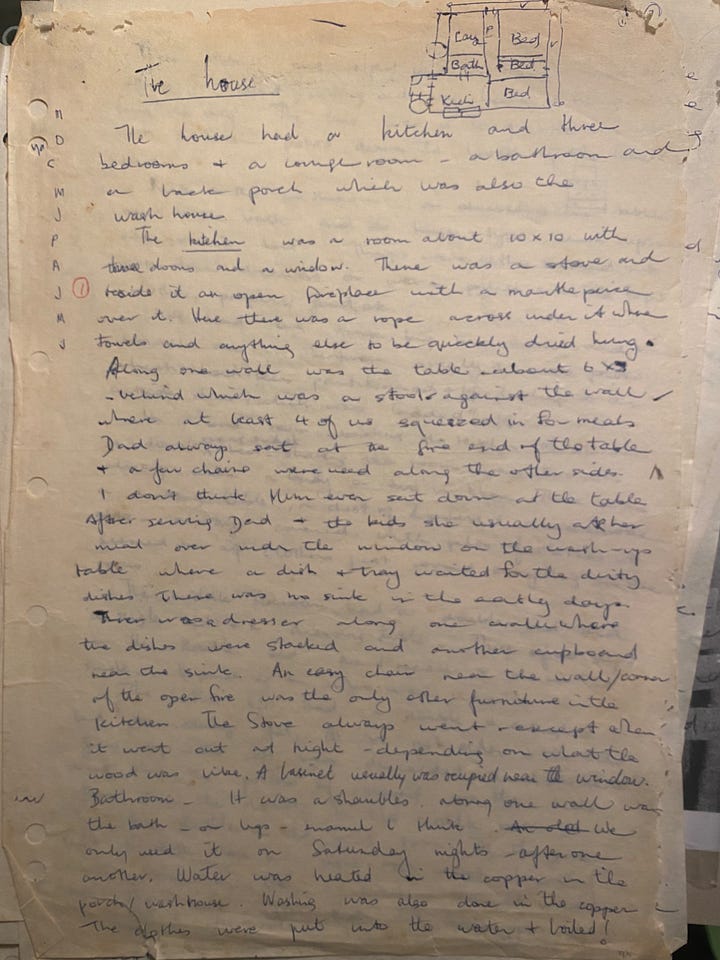 Bed
Bath
Bed
Bed
The house
The house had a kitchen and three
bedrooms + a lounge room - a bathroom and
a back porch which was also the
wash house
The kitchen was a room about 10 x 10 with
three doors and a window. There was a stove and
beside it an open fireplace with a mantlepiece
over it. Here there was a rope across under it where
towels and anything else to be quickly dried hung.
Along one wall was the table - about 6 x
- behind which was a stool against the wall
where at least 4 of us squeezed in for meals
Dad always sat at the fire end of the table
+ a few chairs were used along the other sides.
I don't think Mum ever sat down at the table
After serving Dad + the kids she usually ate her
meal over under the window on the wash-up
table where a dish + tray waited for the dirty
dishes There was no sink in the early days.
There was a dresser along one wall where
the dishes were stacked and another cupboard
near the sink. An easy chair near the wall/corner
of the open fire was the only other furniture in the
kitchen The Stove always went - except when
it went out at night - depending on what the
wood was like. A basinet usually was ocupied near the window.
Bathroom - It was a shambles. along one wall was
the bath - on legs - enamel I think. An old We
only used it on Saturday nights - after one
another. Water was heated in the copper in the
porch/washhouse. Washing was also done in the copper
The clothes were put into the water + boiled!
N
D
C
M
J
P
A
J
M
J
1